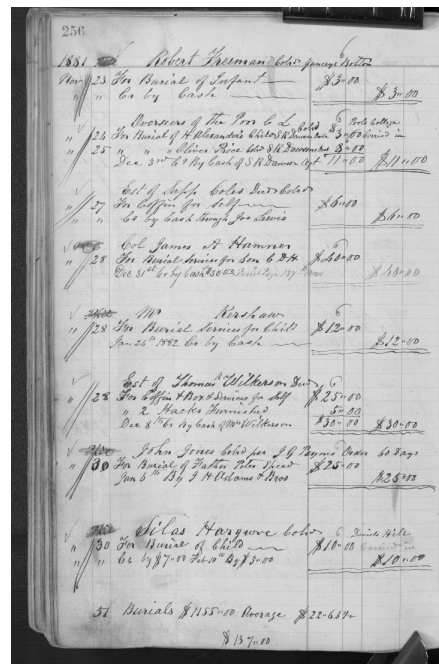 256
1881 Robert Freeman Cold Yanceys Bottom
Nov 23 For Burial of Infant $3"00
" " Cr by Cash $3"00
Overseers of the Poor C L
" 24 For Burial of H Alexanders Child S R Dawson Cold $3"00 Buried in
" 25 " " " Oliver Price Cold S R Dawson 8"00
Dec 3rd Cr By Cash of S R Dawson Agt 11"00 $11"00
Est of Sapp Coles Decd Cold
" 27 For Coffin for Self $6"00
" " Cr by Cash through Jno Lewis $6"00
Col James A Hamner
" 28 For Burial Services for Son C D H $40"00
Dec 31st Cr by Cash $30"00 $40"00
Mr Kershaw
" 28 For Burial Services for Child $12"00
Jan 26th 1882 Cr by Cash $12"00
Est of Thomas Wilkerson Decd
" 28 For Coffin & Box & Services for Self $25"00
" 2 Hacks Furnished 5"00
Dec 8th Cr By Cash of Mr Wilkerson $30"00 $30"00
John Jones Cold per J G Paynes Order 60 Days
" 30 For Burial of Father Peter Speed $25"00
Jan 6th By J H Adams & Bros $25"00
Silas Hargrove Cold Daniels Hill
" 30 For Burial of Child $10"00 Buried in
" " Cr by $7"00 Feb 10th By $3"00 $10"00
51 Burials $1155"00 Average $22"64
$137"00